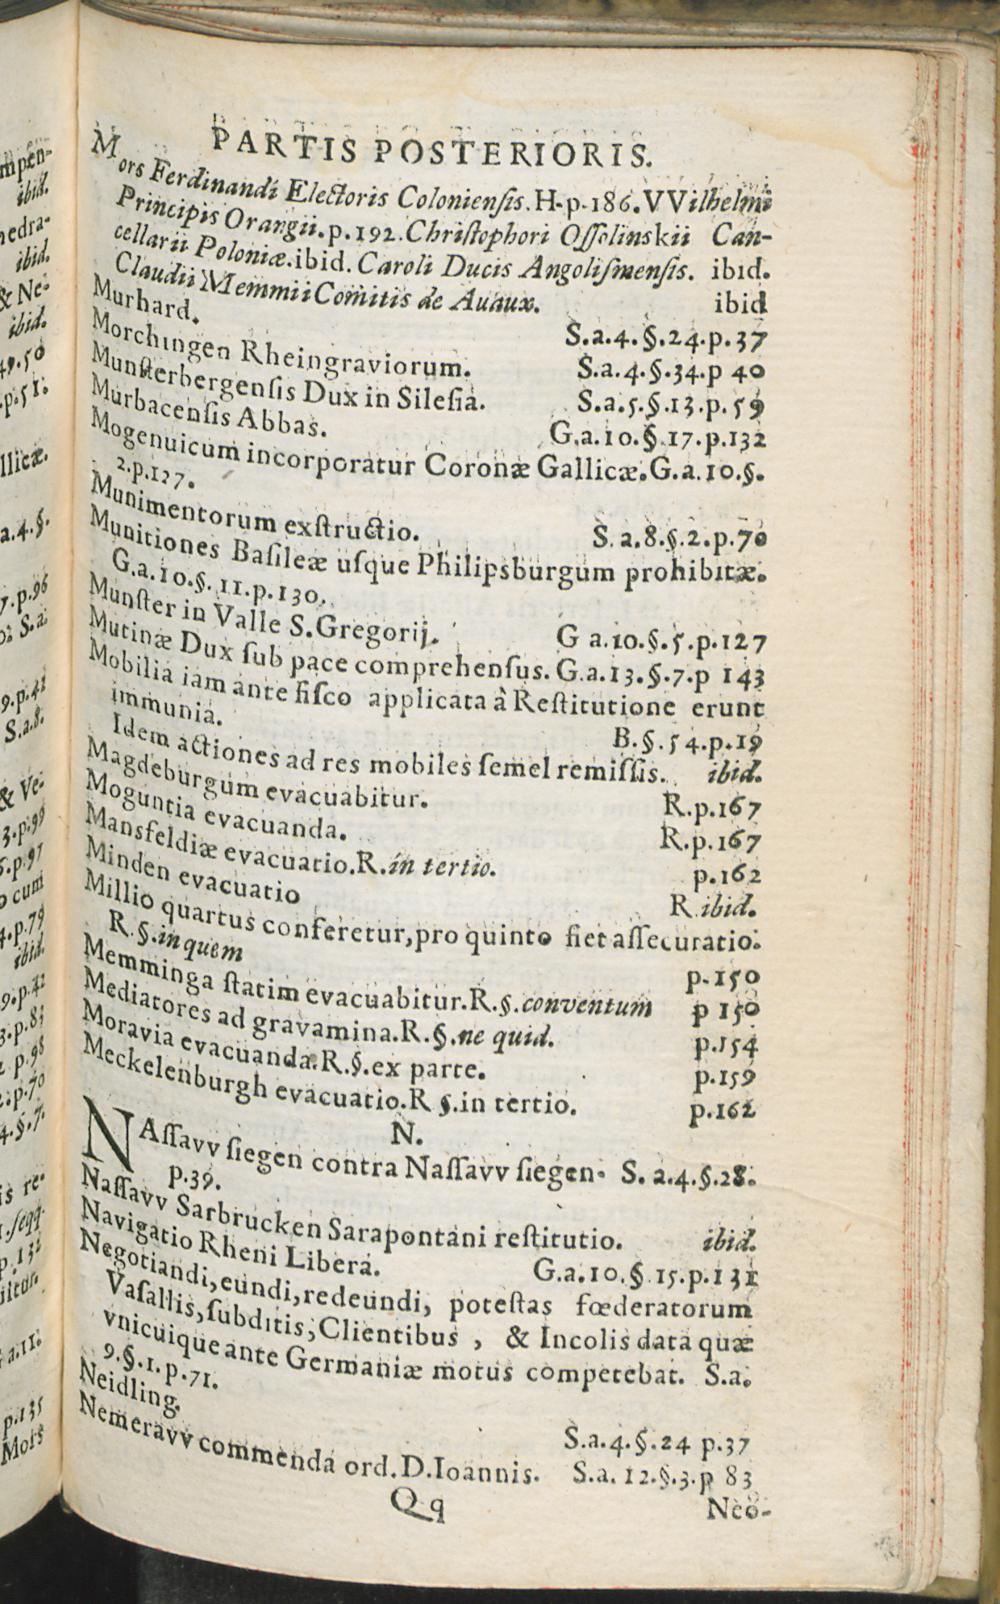 PARTIS POSTERIORIS.
Mors Ferdinandi Electoris Coloniensis. H.p.186. VVilhelmi
Principis Orangii.p.192.Christophori Ossolinskii Can-
cellarii Poloniæ.ibid. Caroli Ducis Angolismensis. ibid.
Claudii Memmii Comitis de Auaux. ibid
Murhard. S.a.4.§.24.p.37
Morchingen Rheingraviorum. S.a.4.§.34.p 40
Munsterbergensis Dux in Silesia. S.a.5.§.13.p.59
Murbacensis Abbas. G.a.10.§.17.p.132
Mogenuicum incorporatur Coronæ Gallicæ.G.a.10.§.
2.p.127.
Munimentorum exstructio. S.a.8.§.2.p.70
Munitiones Basileæ usque Philipsburgum prohibitæ.
G.a.10.§.11.p.130.
Munster in Valle S.Gregorij. G a.10.§.5.p.127
Mutinæ Dux sub pace comprehensus. G.a.13.§.7.p 143
Mobilia iam ante fisco applicata à Restitutione erunt
immunia. B.§.54.p.19
Idem actiones ad res mobiles semel remissis. ibid.
Magdeburgum evacuabitur. R.p.167
Moguntia evacuanda. R.p.167
Mansfeldiæ evacuatio.R.in tertio. p.162
Minden evacuatio R.ibid.
Millio quartus conferetur,pro quinto fiet assecuratio.
R.§.in quem p.150
Memminga statim evacuabitur.R.§.conventum p 150
Mediatores ad gravamina.R.§.ne quid. p.154
Moravia evacuanda.R.§.ex parte. p.159
Meckelenburgh evacuatio.R §.in tertio. p.162
N.
NAssavv siegen contra Nassavv siegen. S. a.4.§.28.
p.39.
Nassavv Sarbrucken Sarapontani restitutio. ibid.
Navigatio Rheni Libera. G.a.10.§.15.p.131
Negotiandi,eundi,redeundi, potestas fœderatorum
Vasallis,subditis,Clientibus , & Incolis data quæ
vnicuique ante Germaniæ motus competebat. S.a.
9.§.1.p.71.
Neidling. S.a.4.§.24 p.37
Nemeravv commenda ord.D.Ioannis. S.a.12.§.3.p 83
Qq Neo-